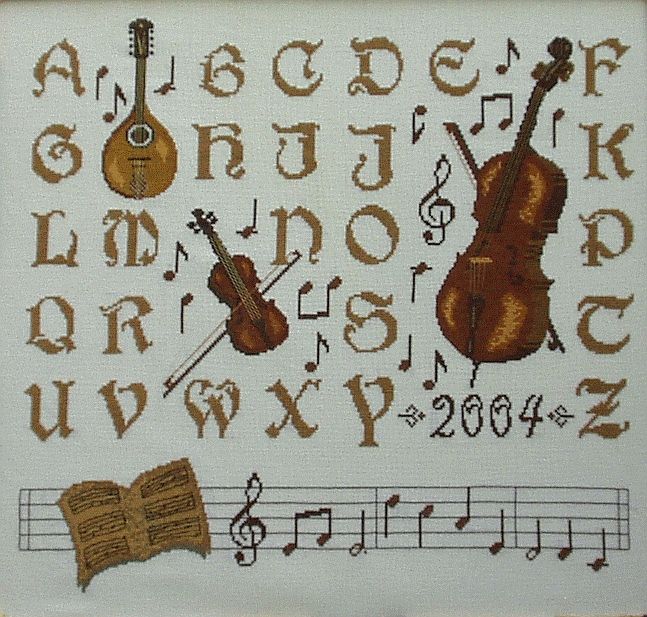 A B C D E F
G H I J K
L M N O P
Q R S T
U V W X Y 2004 Z